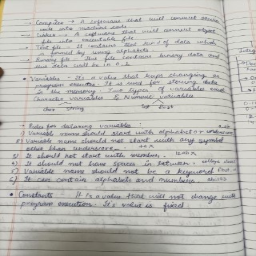 - Compiler → A software that will convert source
code into machine code.
- Linker → A software that will convert object
file into executable file.
- Text file → It contains text
is formed by using alphabets
- Binary file → This file contains binary data and
are in 0 & 1.
• Variables → It's a value that keeps changing as
program executes. It is used for storing data
in the memory. Two types of variables are
Character variable & Numeric variable
char string int float
→ Rules for declaring variable :
1) Variable name should start with alphabet or underscore
2) Variable name should not start with any symbol
other than underscore.
3) It should not start with number.
4) It should not have spaces in between.
5) Variable name should not be a keyword
6) It can contain alphabets and numbers
• Constants → It is a value that will not change
program execution. It's value is fixed.